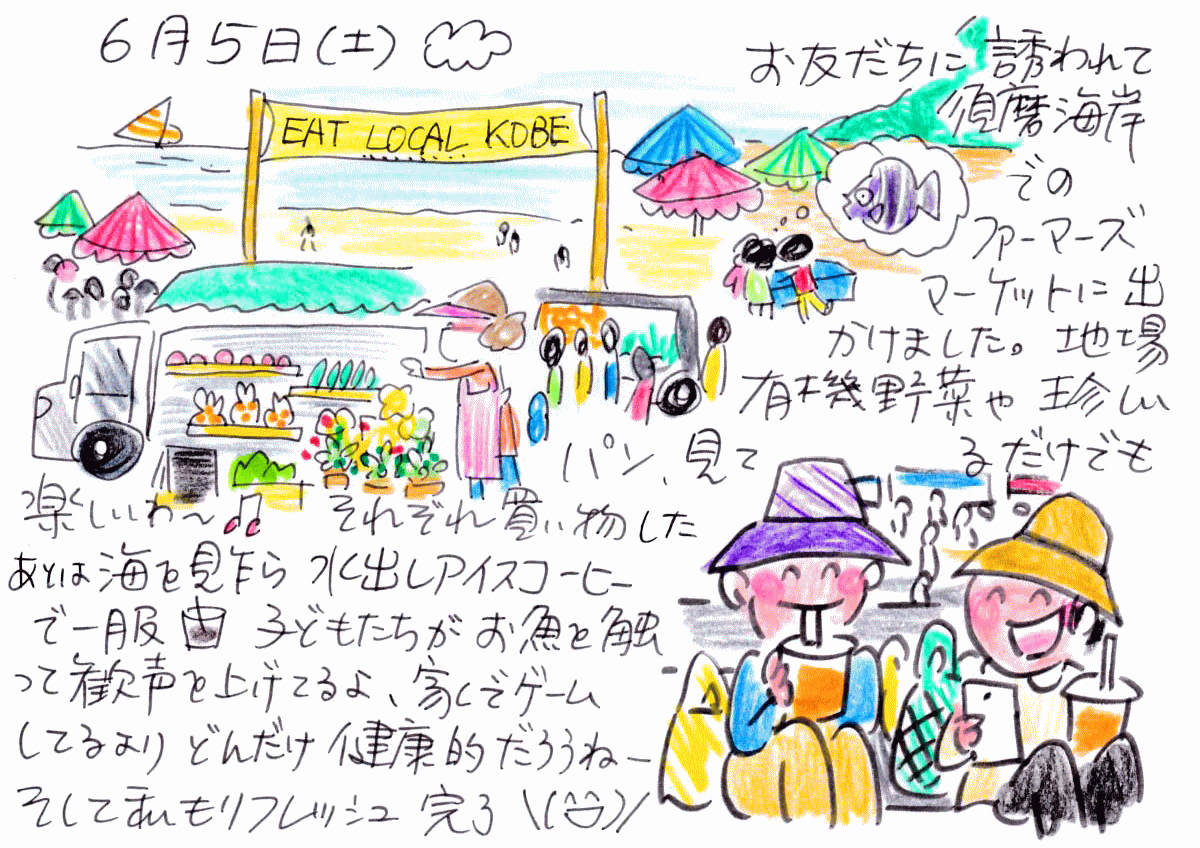 6月5日(土)
EAT LOCAL KOBE
お友だちに誘われて
須磨海岸
での
ファーマーズ
マーケットに出
かけました。地場
有機野菜や珍しい
パン、見て るだけでも
楽しいわ〜♫ それぞれ買い物した
あとは海を見乍ら 水出しアイスコーヒー
で一服 子どもたちがお魚を触
って歓声を上げてるよ、家でゲーム
してるより どんだけ 健康的だろうねー
そして私もリフレッシュ 完了 \(^^)/